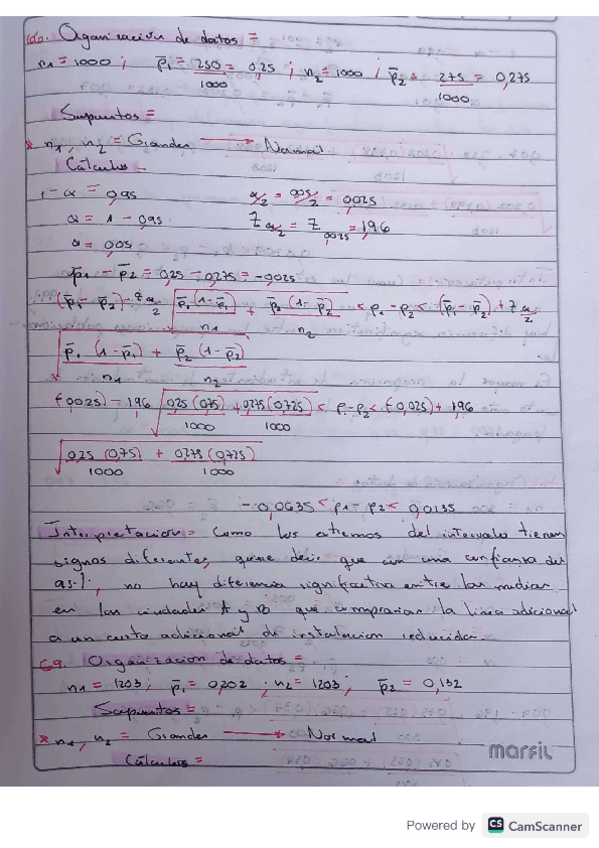 Organización de datos =
n1 = 1000 ; p̄1 = 250/1000 = 0,25 ; n2 = 1000 ; p̄2 = 275/1000 = 0,275
Supuestos =
* n1, n2 = Grandes → Normal
Cálculos =
1 - α = 0,95    α/2 = 0,05/2 = 0,025
α = 1 - 0,95    Z α/2 = Z 0,025 = 1,96
α = 0,05
p̄1 - p̄2 = 0,25 - 0,275 = -0,025
(p̄1 - p̄2) - Z α/2 √(p̄1 (1-p̄1)/n1 + p̄2 (1-p̄2)/n2) < p1 - p2 < (p̄1 - p̄2) + Z α/2
√(p̄1 (1-p̄1)/n1 + p̄2 (1-p̄2)/n2)
(-0,025) - 1,96 √(0,25 (0,75)/1000 + 0,275 (0,725)/1000) < p1 - p2 < (-0,025) + 1,96
√(0,25 (0,75)/1000 + 0,275 (0,725)/1000)
-0,0635 < p1 - p2 < 0,0135
Interpretación = Como los extremos del intervalo tienen
signos diferentes, quiere decir que con una confianza del
95%, no hay diferencia significativa entre las medias
en las ciudades A y B que comprarian la linea adicional
a un costo adicional de instalacion reducida.
69. Organización de datos =
n1 = 1203 ; p̄1 = 0,202 ; n2 = 1203 ; p̄2 = 0,132
Supuestos =
* n1, n2 = Grandes → Normal
Cálculos =
marfil
Powered by CS CamScanner